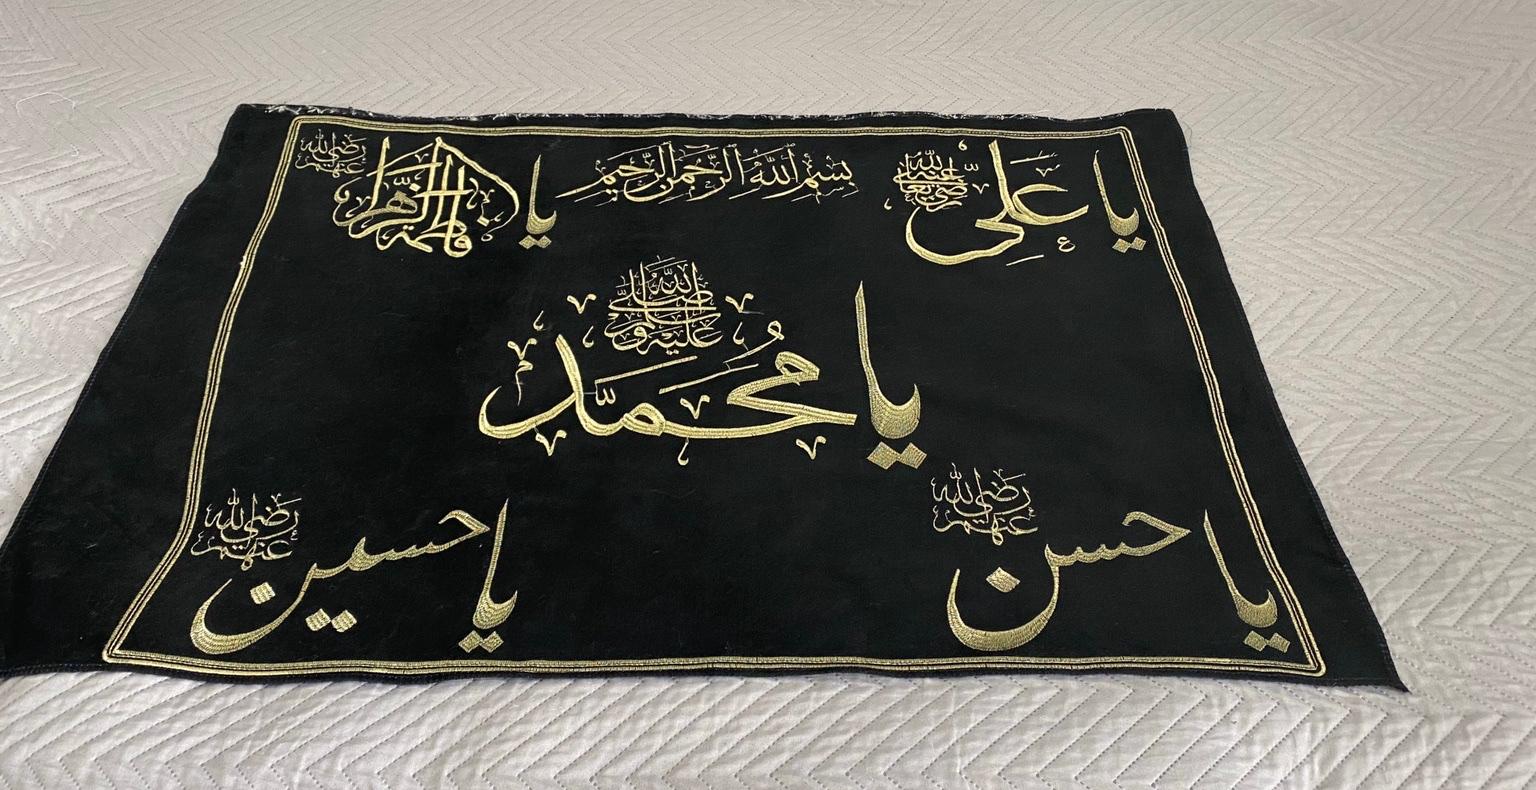 بسم الله الرحمن الرحيم
يا علي رضي الله تعالى عنه
يا فاطمة الزهرا رضي الله عنهم
يا محمد صلى الله عليه وسلم
يا حسن رضي الله عنهم
يا حسين رضي الله عنهم